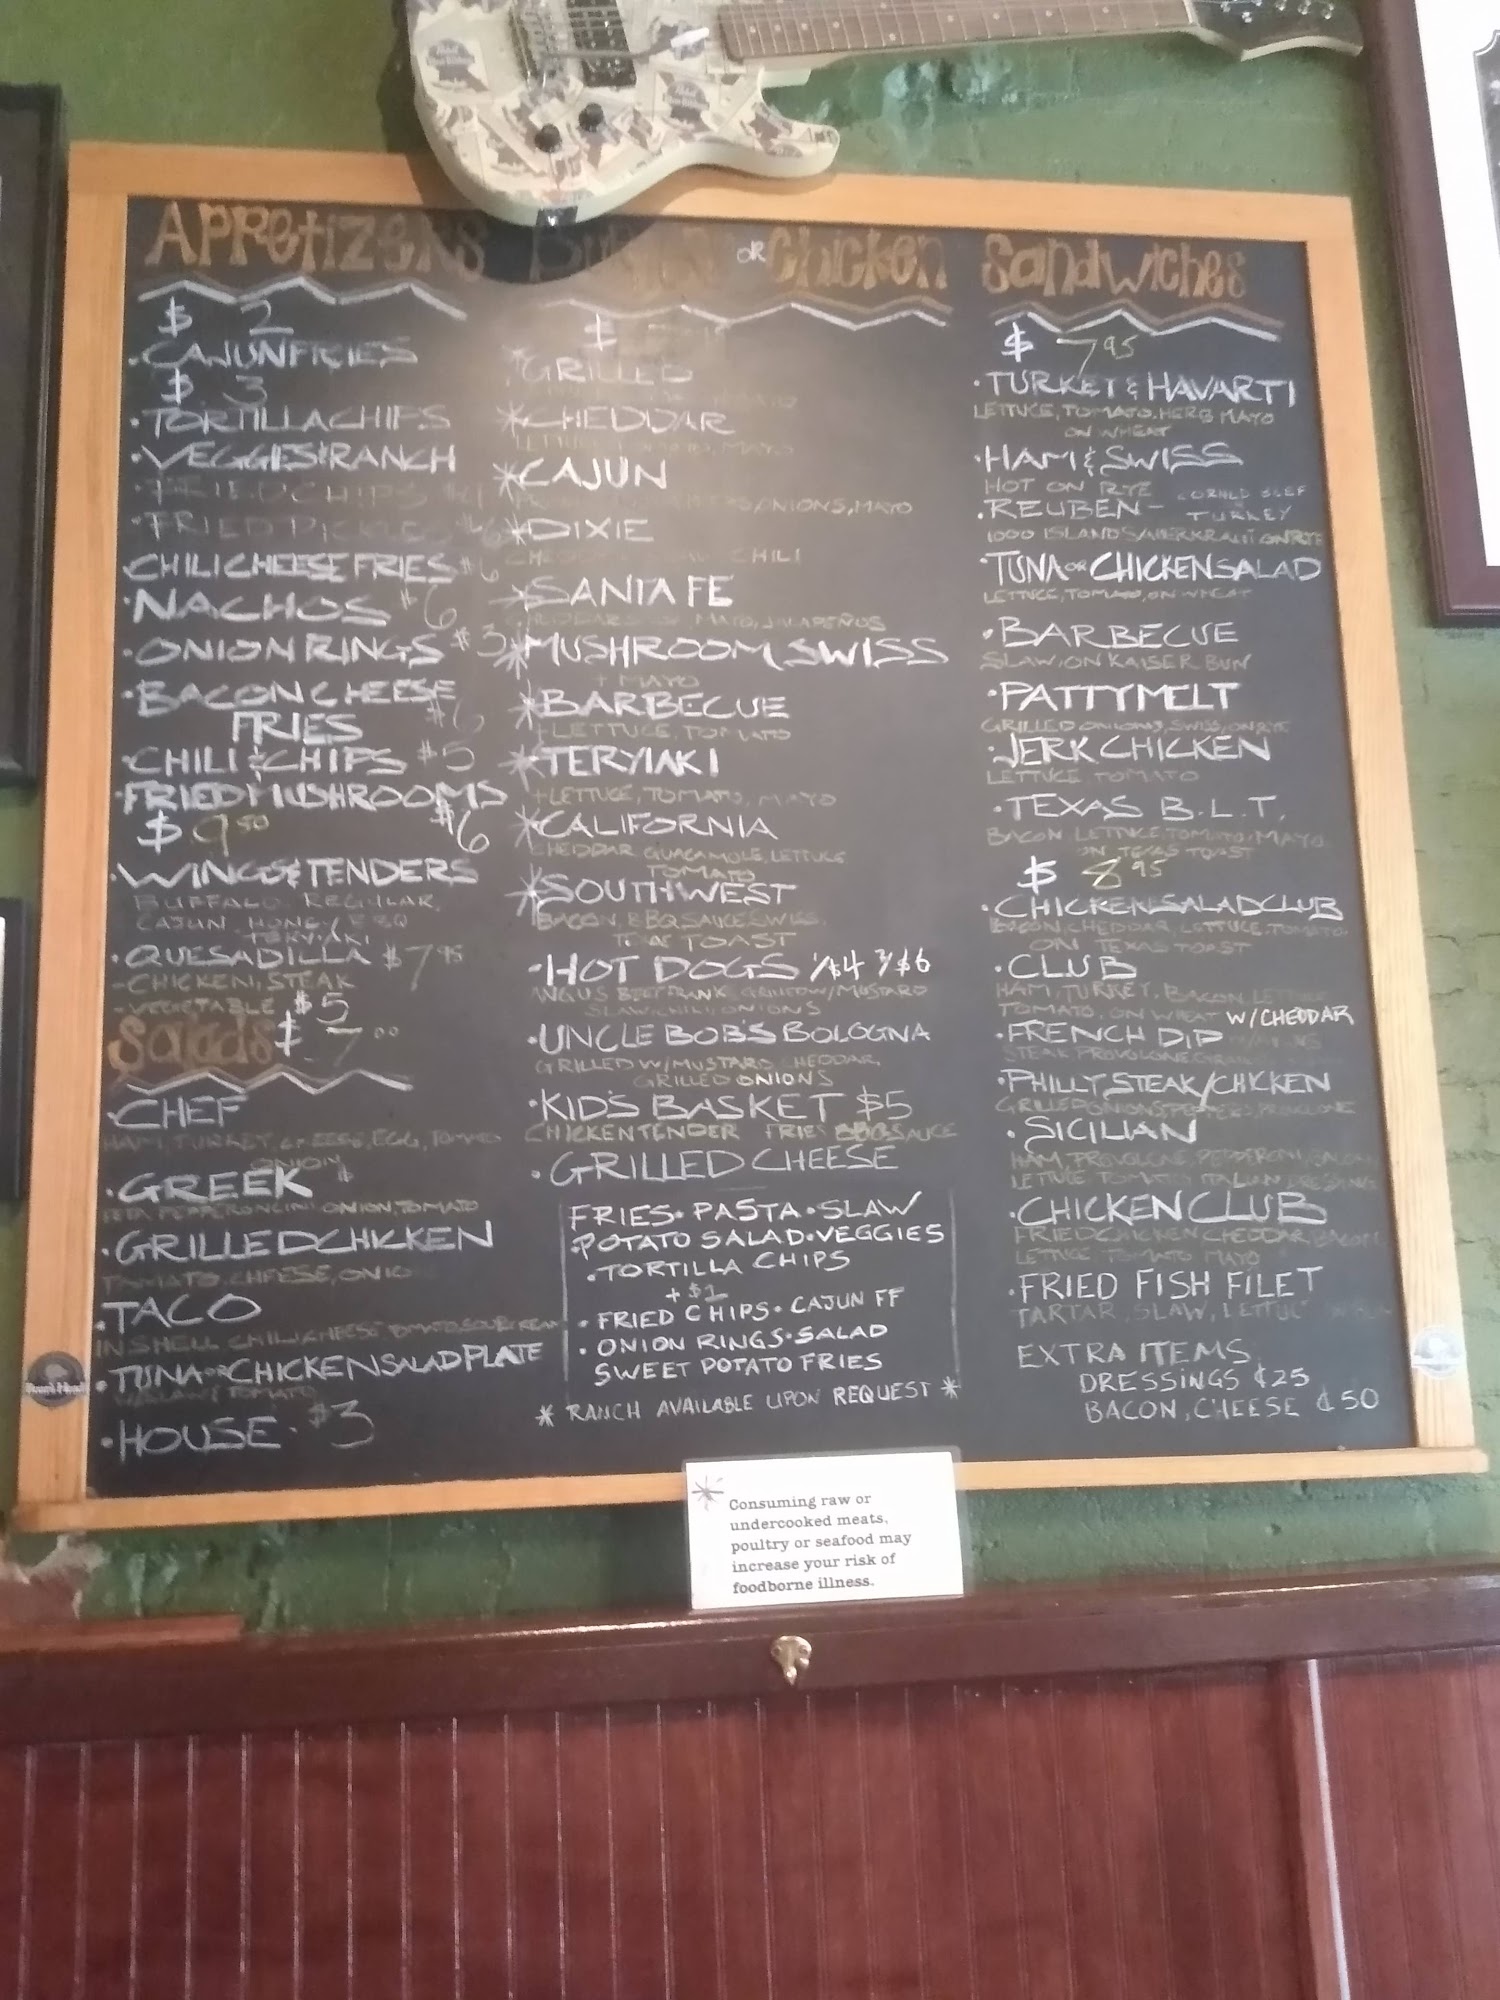 APPetizeRS
$ 2
• CAJUN FRIES
$ 3
• TORTILLA CHIPS
• VEGGIES & RANCH
• FRIED CHIPS
• FRIED PICKLES
CHILI CHEESE FRIES $6
• NACHOS $6
• ONION RINGS $3
• BACON CHEESE
FRIES $6
• CHILI & CHIPS $5
• FRIED MUSHROOMS
$6
$ 9.50
• WINGS & TENDERS
BUFFALO, REGULAR,
CAJUN, HONEY BBQ
TERYIAKI
• QUESADILLA $7.95
- CHICKEN, STEAK
- VEGETABLE $5
Salads $ 7.00
• CHEF
HAM, TURKEY, CHEESE, EGG, TOMATO
ONION
• GREEK
FETA PEPPERONCINI ONION, TOMATO
• GRILLED CHICKEN
TOMATO, CHEESE, ONION
• TACO
IN SHELL, CHILI, CHEESE, TOMATO, SOUR CREAM
• TUNA OR CHICKEN SALAD PLATE
TOMATO
• HOUSE • $3
OR Chicken
$
GRILLED
* CHEDDAR
LETTUCE, TOMATO, MAYO
* CAJUN
ONIONS, MAYO
* DIXIE
CHILI
* SANTA FE
MAYO, JALAPEÑOS
* MUSHROOM SWISS
+ MAYO
* BARBECUE
+ LETTUCE, TOMATO
* TERYIAKI
+ LETTUCE, TOMATO, MAYO
* CALIFORNIA
CHEDDAR GUACAMOLE, LETTUCE
TOMATO
* SOUTHWEST
BACON, BBQ SAUCE, SWISS,
TOAST
• HOT DOGS 1/$4 2/$6
ANGUS BEEF FRANK GRILLED W/ MUSTARD
SLAW, CHILI, ONIONS
• UNCLE BOB'S BOLOGNA
GRILLED W/ MUSTARD CHEDDAR,
GRILLED ONIONS
• KID'S BASKET $5
CHICKEN TENDER FRIES BBQ SAUCE
• GRILLED CHEESE
FRIES • PASTA • SLAW
• POTATO SALAD • VEGGIES
• TORTILLA CHIPS
+ $1
• FRIED CHIPS • CAJUN FF
• ONION RINGS • SALAD
SWEET POTATO FRIES
* RANCH AVAILABLE UPON REQUEST *
Sandwiches
$ 7.95
• TURKEY & HAVARTI
LETTUCE, TOMATO, HERB MAYO
ON WHEAT
• HAM & SWISS
HOT ON RYE
• REUBEN - CORNED BEEF
TURKEY
1000 ISLAND SAUERKRAUT ON RYE
• TUNA OR CHICKEN SALAD
LETTUCE, TOMATO, ON WHEAT
• BARBECUE
SLAW, ON KAISER BUN
• PATTY MELT
GRILLED ONIONS, SWISS, ON RYE
• JERK CHICKEN
LETTUCE TOMATO
• TEXAS B.L.T.
BACON LETTUCE, TOMATO, MAYO
ON TEXAS TOAST
$ 8.95
• CHICKEN SALAD CLUB
BACON, CHEDDAR, LETTUCE, TOMATO
ON TEXAS TOAST
• CLUB
HAM, TURKEY, BACON, LETTUCE
TOMATO, ON WHEAT W/ CHEDDAR
• FRENCH DIP
STEAK PROVOLONE
• PHILLY STEAK/CHICKEN
GRILLED ONIONS PEPPERS, PROVOLONE
• SICILIAN
HAM, PROVOLONE, PEPPERONI, BACON
LETTUCE TOMATO, ITALIAN DRESSING
• CHICKEN CLUB
FRIED CHICKEN CHEDDAR, BACON
LETTUCE TOMATO MAYO
• FRIED FISH FILET
TARTAR, SLAW, LETTUCE
EXTRA ITEMS
DRESSINGS ¢25
BACON, CHEESE ¢50
* Consuming raw or
undercooked meats,
poultry or seafood may
increase your risk of
foodborne illness.